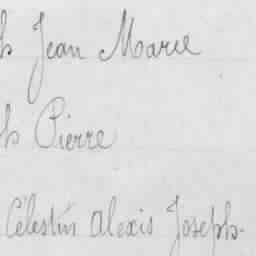 Jean Marie
Pierre
Célestin Alexis Joseph-